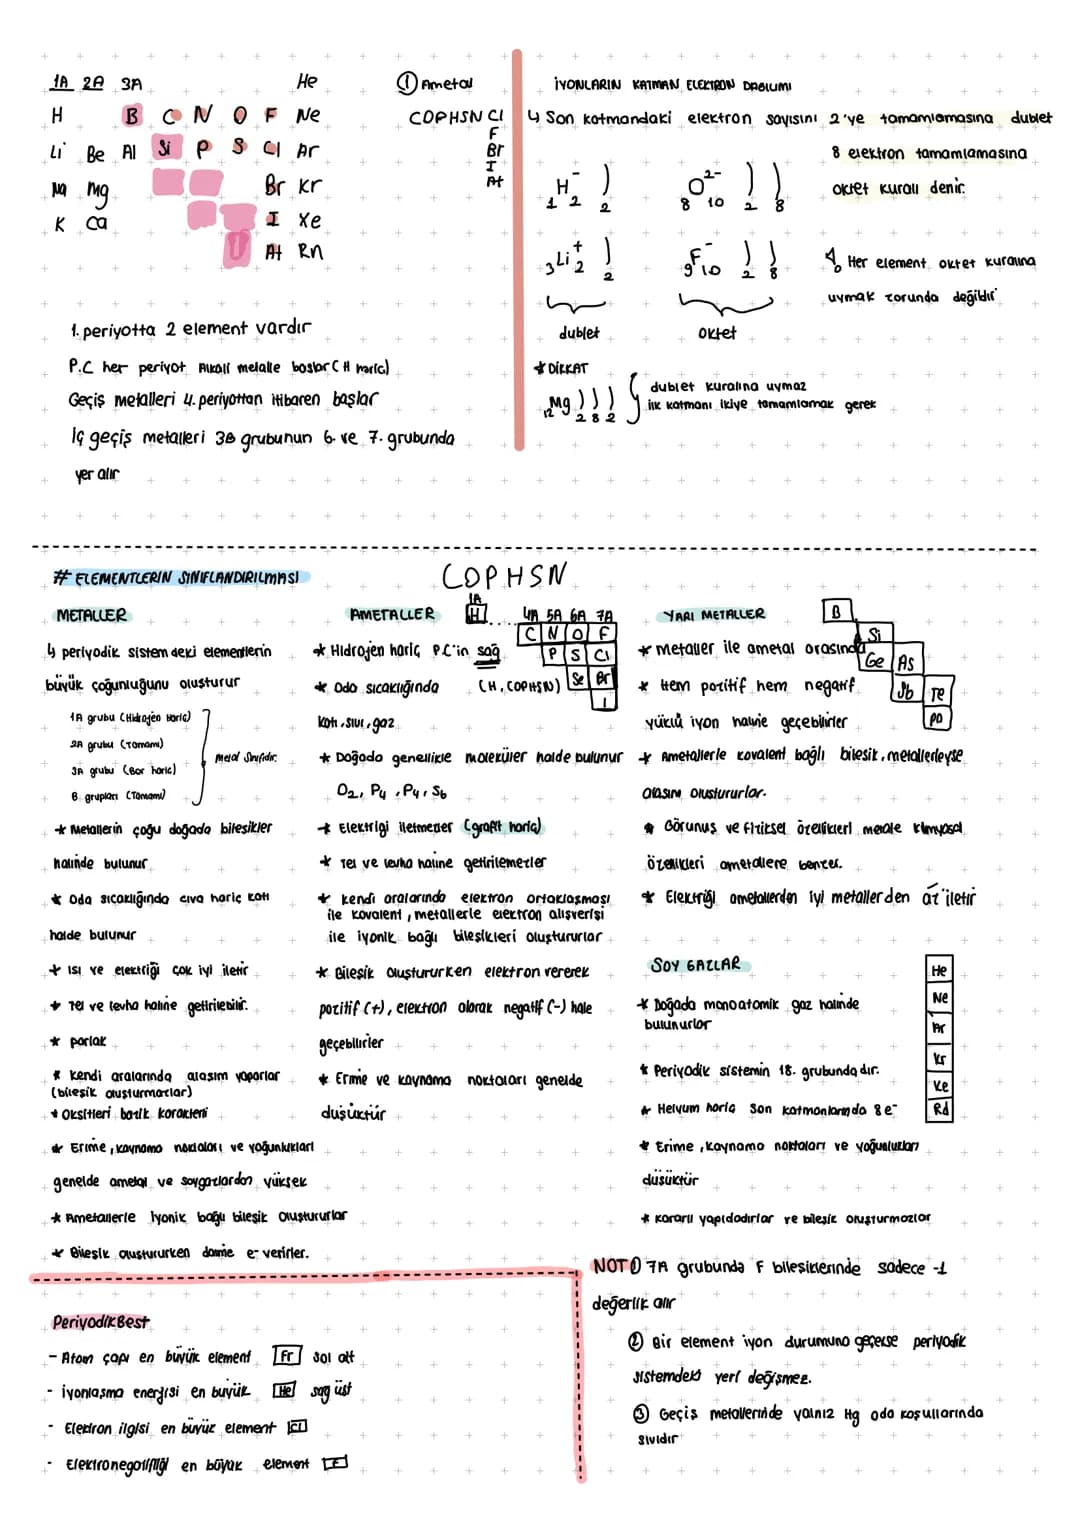 1A 2A 3A He
H B C N O F Ne
Li Be Al Si P S Cl Ar
Na Mg Br Kr
K Ca I Xe
At Rn
1. periyotta 2 element vardır
P.C her periyot Alkali metalle başlar (H hariç)
Geçiş metalleri 4. periyottan itibaren başlar
İç geçiş metalleri 3B grubunun 6. ve 7. grubunda
yer alır
① Ametal
COPHSN Cl
F
Br
I
At
İYONLARIN KATMAN ELEKTRON DAĞILIMI
↳ Son katmandaki elektron sayısını 2'ye tamamlamasına dublet
8 elektron tamamlamasına
oktet kuralı denir.
1H⁻2 ) 2
8O²⁻10 ) ) 2 8
3Li⁺2 ) 2
9F⁻10 ) ) 2 8
Her element oktet kuralına
uymak zorunda değildir
dublet
oktet
* DİKKAT
12Mg ) ) ) 2 8 2
dublet kuralına uymaz
ilk katmanı ikiye tamamlamak gerek
# ELEMENTLERİN SINIFLANDIRILMASI
COPHSN
METALLER
↳ periyodik sistemdeki elementlerin
büyük çoğunluğunu oluşturur
1A grubu (Hidrojen Hariç)
2A grubu (Tamamı)
3A grubu (Bor hariç)
B grupları (Tamamı)
metal Sınıfıdır.
* Metallerin çoğu doğada bileşikler
halinde bulunur
* Oda sıcaklığında cıva hariç katı
halde bulunur
* Isı ve elektriği çok iyi iletir
* Tel ve levha haline getirilebilir.
* parlak
* Kendi aralarında alaşım yaparlar
(bileşik oluşturmazlar)
* Oksitleri bazik karakterli
* Erime, kaynama noktaları ve yoğunlukları
genelde ametal ve soygazlardan yüksek
* Ametallerle iyonik bağlı bileşik oluştururlar
* Bileşik oluştururken daime e⁻ verirler.
AMETALLER
1A
H
4A 5A 6A 7A
C N O F
P S Cl
Se Br
I
* Hidrojen hariç P.C'in sağ
(H, COPHSN)
* Oda sıcaklığında
katı, sıvı, gaz
* Doğada genellikle moleküler halde bulunur
O2, P4, P4, S6
* Elektriği iletmezler (grafit hariç)
* Tel ve levha haline getirilemezler
* kendi aralarında elektron ortaklaşması
ile kovalent, metallerle elektron alışverişi
ile iyonik bağlı bileşikleri oluştururlar
* Bileşik oluştururken elektron vererek
pozitif (+), elektron alarak negatif (-) hale
geçebilirler
* Erime ve kaynama noktaları genelde
düşüktür
YARI METALLER
B
Si
Ge As
Sb Te
Po
* metaller ile ametal arasında
* Hem pozitif hem negatif
yüklü iyon haline geçebilirler
* Ametallerle kovalent bağlı bileşik, metallerleyse
alaşım oluştururlar.
* Görünüş ve fiziksel özellikleri metale kimyasal
özellikleri ametallere benzer.
* Elektriği ametallerden iyi metallerden az iletir
SOY GAZLAR
He
Ne
Ar
Kr
Xe
Rd
* Doğada monoatomik gaz halinde
bulunurlar
* Periyodik sistemin 18. grubunda dır.
* Helyum hariç son katmanlarında 8 e⁻
* Erime, kaynama noktaları ve yoğunlukları
düşüktür
* Kararlı yapıdadırlar ve bileşik oluşturmazlar
NOT ① 7A grubunda F bileşiklerinde sadece -1
değerlik alır
② Bir element iyon durumuna geçerse periyodik
sistemdeki yeri değişmez.
③ Geçiş metallerinde yalnız Hg oda koşullarında
sıvıdır
Periyodik Best
- Atom çapı en büyük element Fr sol alt
- iyonlaşma enerjisi en büyük He sağ üst
- Elektron ilgisi en büyük element Cl
- Elektronegatifliği en büyük element F